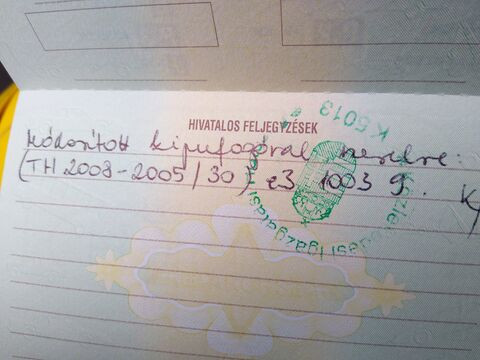 HIVATALOS FELJEGYZÉSEK
Módosított kipufogóval szerelve:
(TH 2008-2005/30) e3 1003 9.
K 5013